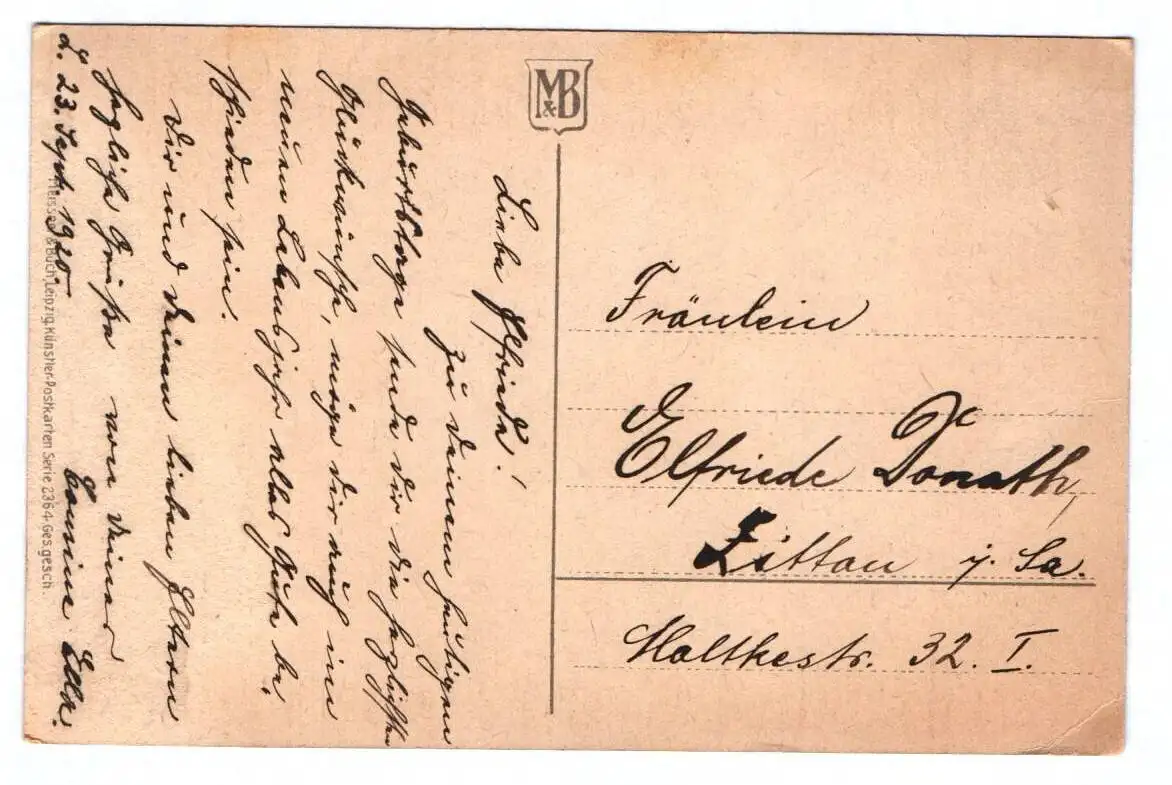 L. 23. Sept. 1920.
Liebe Elfriede!
Zu deinem heutigen
Geburtstage sende dir die herzlichsten
Glückwünsche, möge dir auch im
neuen Lebensjahr alles Gute be-
schieden sein.
Dir und deinen lieben Eltern
herzliche Grüße von deiner
Cousine Ella.
Meissner & Buch, Leipzig, Künstler-Postkarten Serie 2364. Ges. gesch.
M&B
Fräulein
Elfriede Donath,
Zittau i. Sa.
Moltkestr. 32. I.